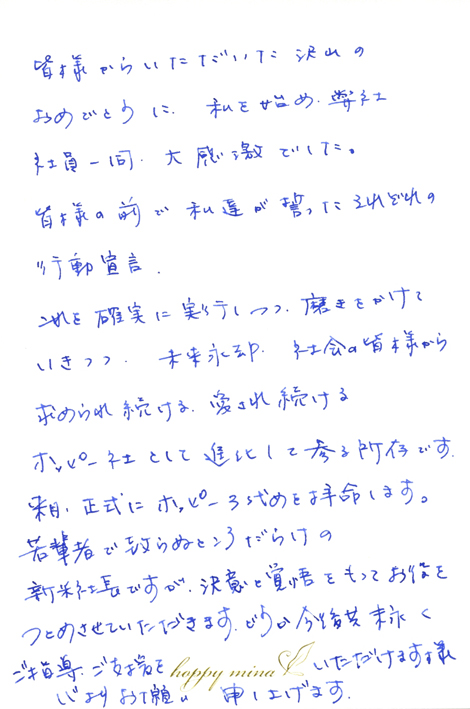 皆様からいただいた沢山の
おめでとうに、私を始め、弊社
社員一同、大感激でした。
皆様の前で私達が誓ったそれぞれの
行動宣言、
これを確実に実行しつつ、磨きをかけて
いきつつ、未来永劫、社会の皆様から
求められ続ける、愛され続ける
ホッピー社として進化して参る所存です。
来月、正式にホッピー3代めを拝命します。
若輩者で至らぬところだらけの
新米社長ですが、決意と覚悟をもってお役を
つとめさせていただきます。どうか今後共末永く
ご指導、ご支援を happy mina いただけます様
心よりお願い申し上げます。